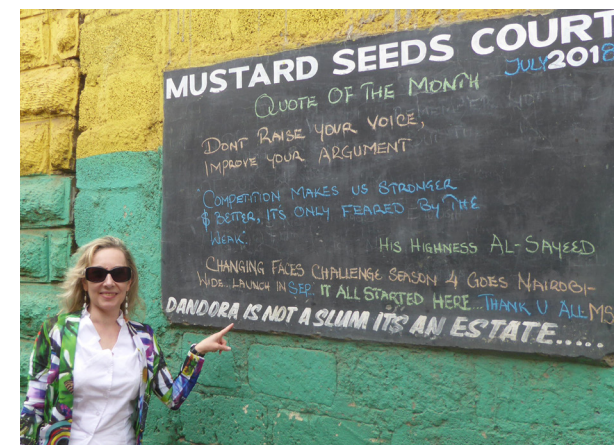 MUSTARD SEEDS COURT
JULY 2018
QUOTE OF THE MONTH
DONT RAISE YOUR VOICE,
IMPROVE YOUR ARGUMENT
COMPETITION MAKES US STRONGER
$ BETTER, ITS ONLY FEARED BY THE
WEAK.
HIS HIGHNESS AL-SAYEED
CHANGING FACES CHALLENGE SEASON 4 GOES NAIROBI-
WIDE.. LAUNCH IN SEP. IT ALL STARTED HERE... THANK U ALL MS
DANDORA IS NOT A SLUM ITS AN ESTATE.....